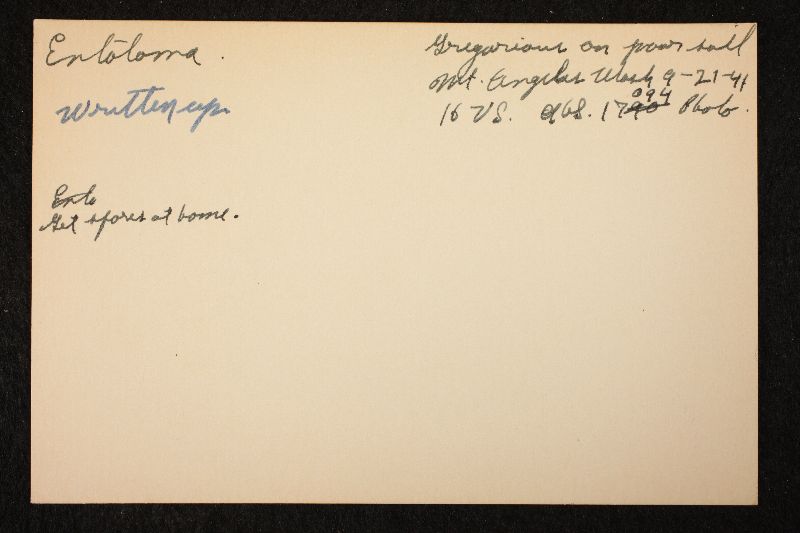 Entoloma.
Gregarious on poor soil
Mt. Angeles Wash 9-21-41
16 VS. AHS. 17094 Photo.
Written up
Ento
Get spores at home.